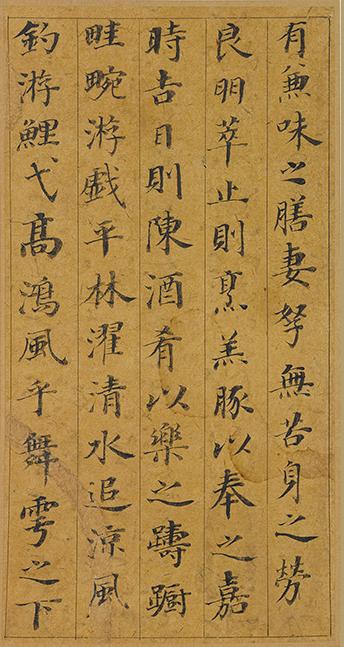 有兼味之膳妻孥無苦身之勞
良朋萃止則烹羔豚以奉之嘉
時吉日則陳酒肴以樂之躊蹰
畦畹游戲平林濯清水追涼風
釣游鯉弋髙鴻風乎舞雩之下